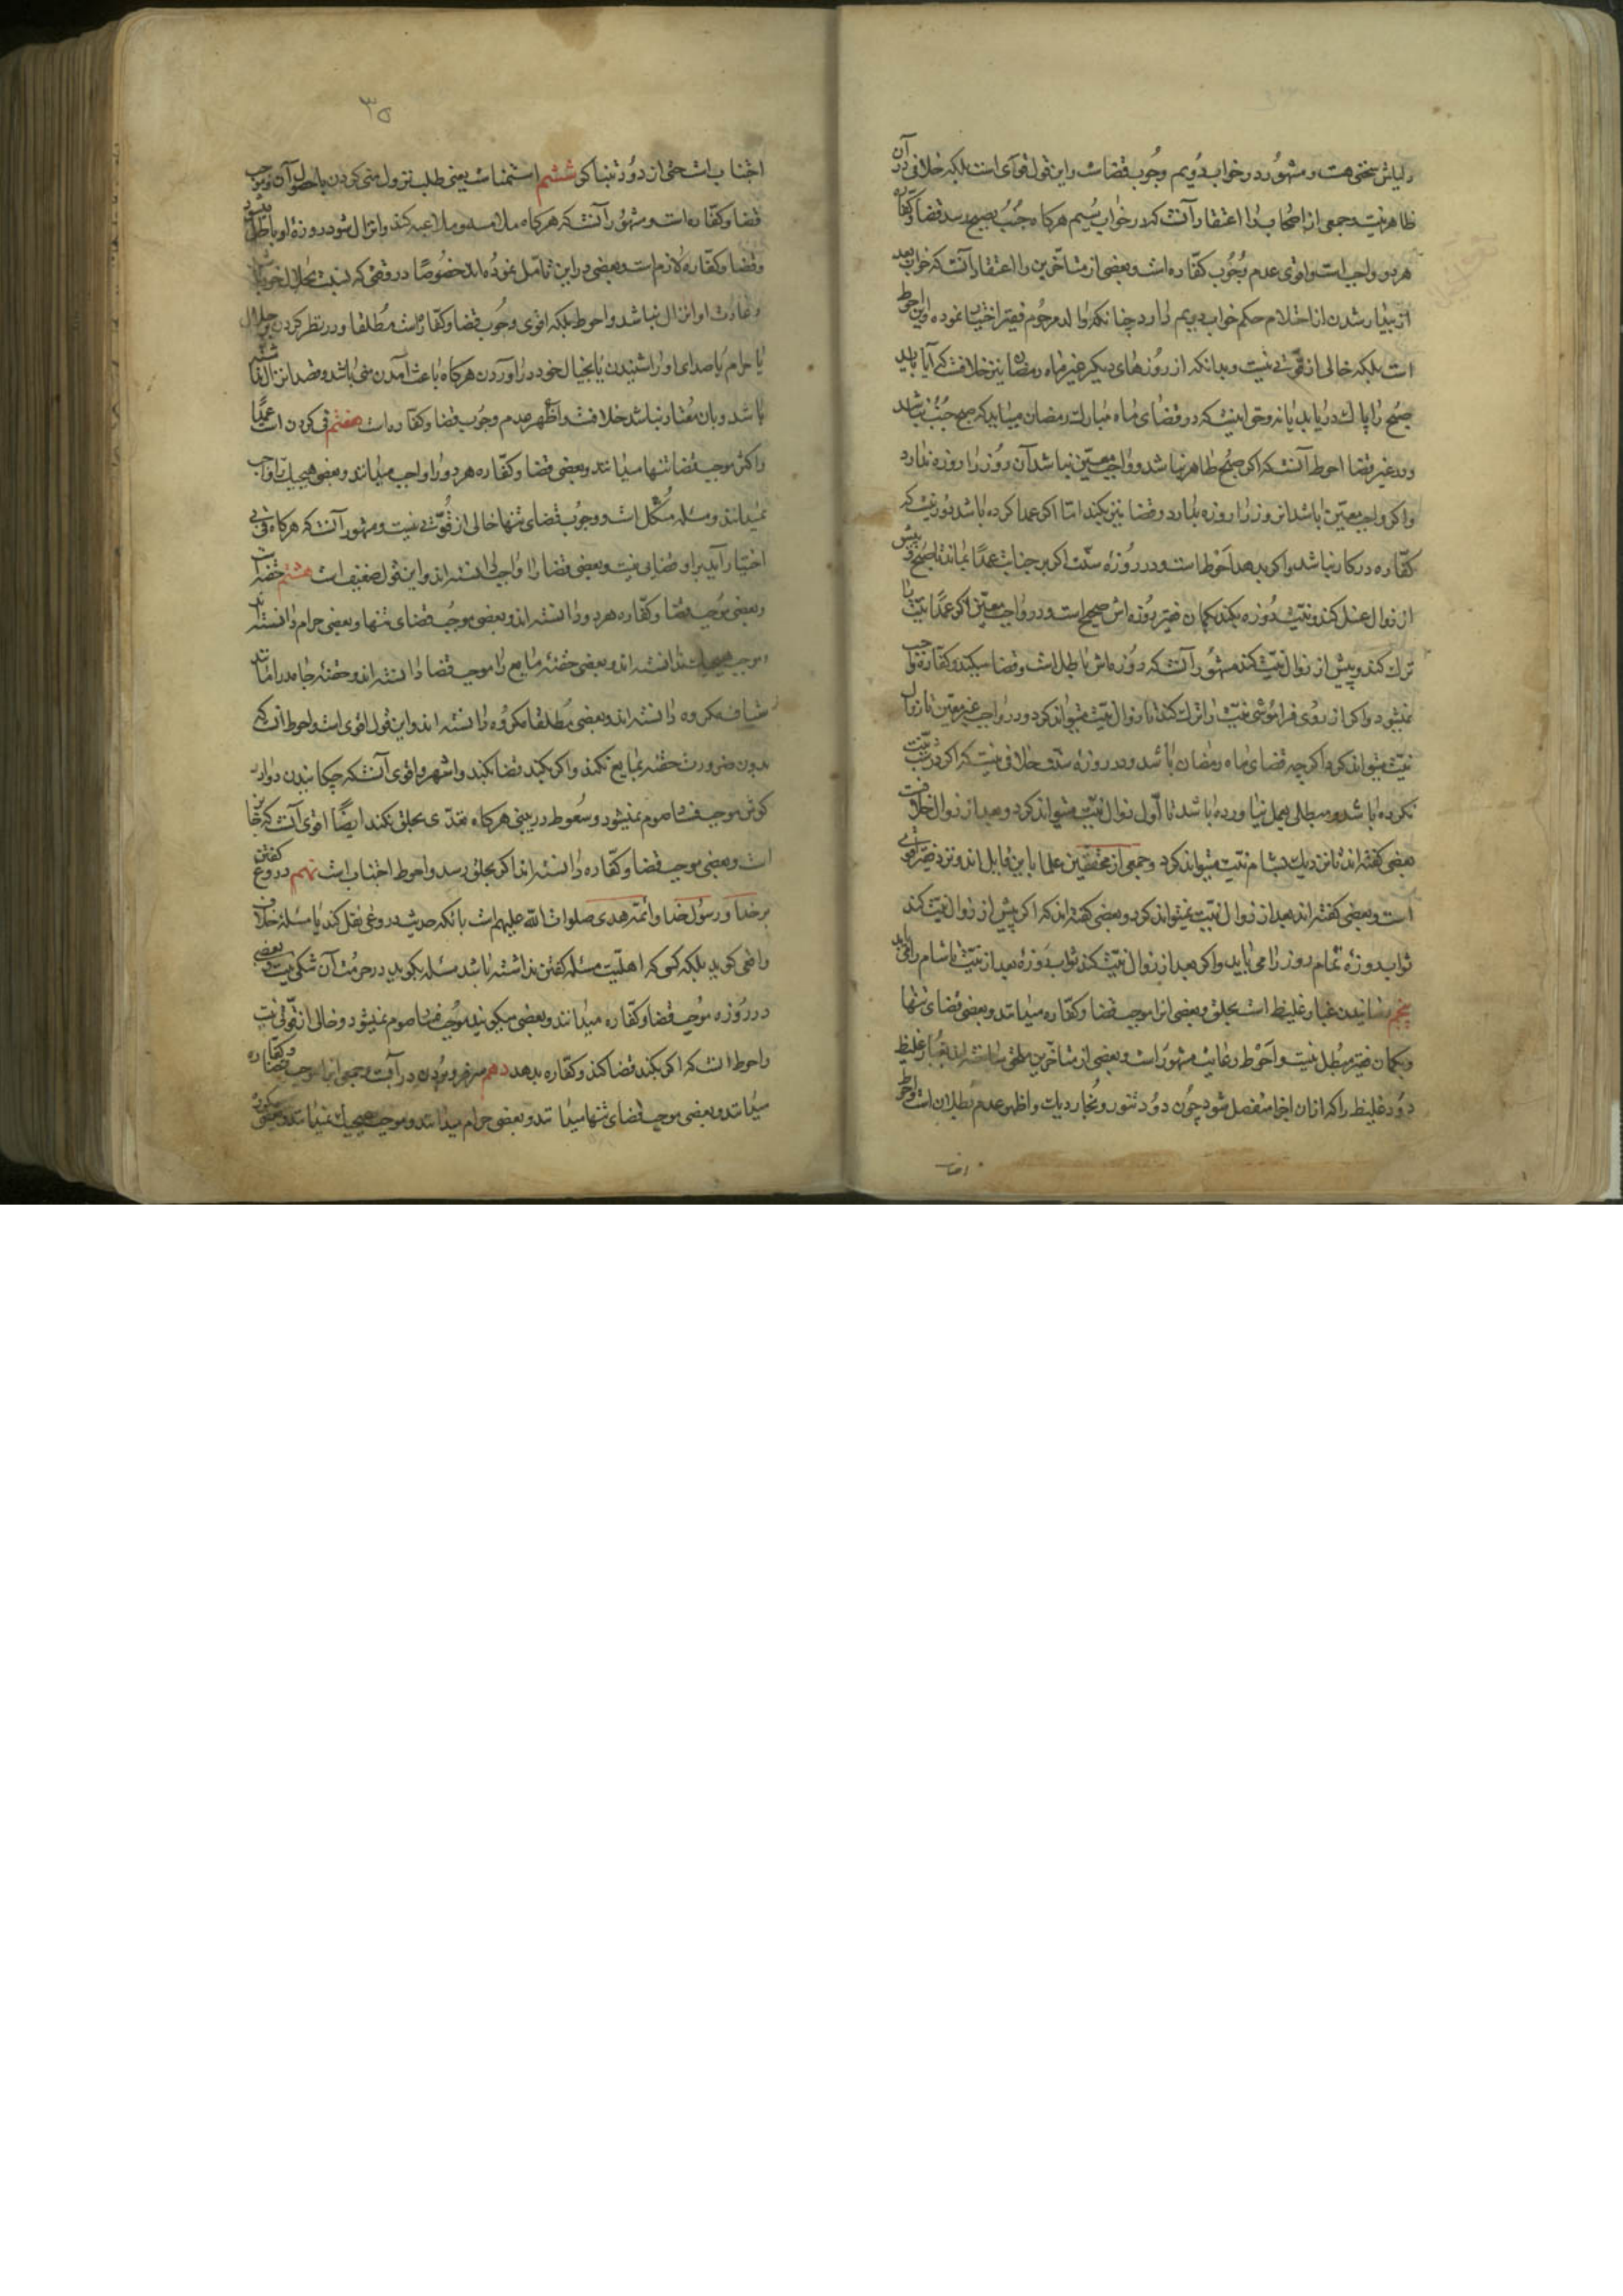 دلیلش سخنی هست و مشهور در خواب دویم وجوب قضاست و این قول قوی است بلکه خلافی در آن
ظاهر نیست و جمعی از اصحاب را اعتقاد آنست که در خواب سیم هرگاه جنب بصبح رسد قضا و کفاره
هر دو واجبست و اقوی عدم وجوب کفاره است و بعضی از متأخرین را اعتقاد آنست که خواب بعد
از بیدار شدن از احتلام حکم خواب دویم دارد چنانکه والد مرحوم فقیر اختیار نموده و این احوط
است بلکه خالی از قوتی نیست و بدانکه از روزهای دیگر غیر ماه رمضان نیز خلافست که آیا باید
صبح را پاک دریابد یا نه و حق اینست که در قضای ماه مبارک رمضان میباید که صبح جنب نباشد
و در غیر قضا احوط آنست که اگر صبح طاهر نباشد و واجب معین نباشد آن روز را روزه ندارد
و اگر واجب معین باشد آنروز را روزه بدارد و قضا نیز بکند اما اگر عمدا کرده باشد دور نیست که
کفاره در کار نباشد و اگر بدهد احوط است و در روزه سنت اگر بر جنابت عمدا بماند تا صبح و پیش
از زوال غسل کند و نیت روزه بکند بگمان فقیر روزه‌اش صحیح است و در واجب معین اگر عمدا نیت را
ترک کند و پیش از زوال نیت کند مشهور آنست که روزه‌اش باطل است و قضا میکند و کفاره واجب
نمیشود و اگر از روی فراموشی نیت را ترک کند تا زوال نیت میتواند کرد و در واجب غیر معین تا زوال
نیت میتواند کرد و اگرچه قضای ماه رمضان باشد و در روزه سنت خلافی نیست که اگر در شب نیت
نکرده باشد و مبطلی بعمل نیاورده باشد تا اول زوال نیت میتواند کرد و بعد از زوال خلافست
بعضی گفته‌اند تا نزدیک بشام نیت میتواند کرد و جمعی از محققین علما باین قایل‌اند و نزد فقیر اقوی
است و بعضی گفته‌اند بعد از زوال نیت نمیتواند کرد و بعضی گفته‌اند که اگر پیش از زوال نیت کند
ثواب روزه تمام روز را می‌یابد و اگر بعد از زوال نیت کند ثواب روزه بعد از نیت تا شام را می‌یابد
پنجم رسانیدن غبار غلیظ است بحلق و بعضی آنرا موجب قضا و کفاره میدانند و بعضی قضای تنها
و بگمان فقیر مبطل نیست و احوط رعایت مشهور است و بعضی از متأخرین ملحق ساخته‌اند بغبار غلیظ
دود غلیظ را که از آن اجزا منفصل شود چون دود تنور و بخار دیک و اظهر عدم بطلان است و احوط
اجتناب
۳۵
اجتناب است حتی از دود تنباکو ششم استمناست یعنی طلب نزول منی کردن با حصول آن و موجب
قضا و کفاره است و مشهور آنست که هرگاه ملامسه و ملاعبه کند و انزال شود روزه او باطل میشود
و قضا و کفاره لازم است و بعضی در این تأمل نموده‌اند خصوصا در وقتی که نسبت بحلال خود باشد
و عادت او انزال نباشد و احوط بلکه اقوی وجوب قضا و کفاره است مطلقا و در نظر کردن بر حلال
یا حرام یا صدای او را شنیدن یا بخیال خود در آوردن هرگاه باعث آمدن منی باشد و قصد انزال نداشته
باشد و بآن معتاد نباشد خلافست و اظهر عدم وجوب قضا و کفاره است هفتم قی کردن است عمدا
و اکثر موجب قضا تنها میدانند و بعضی قضا و کفاره هر دو را واجب میدانند و بعضی هیچیک را واجب
نمیدانند و مسئله مشکل است و وجوب قضای تنها خالی از قوتی نیست و مشهور آنست که هرگاه قی بی
اختیار آید بر او قضایی نیست و بعضی قضا را واجب دانسته‌اند و این قول ضعیف است هشتم حقنه است
و بعضی موجب قضا و کفاره هر دو دانسته‌اند و بعضی موجب قضای تنها و بعضی حرام دانسته‌اند
و موجب هیچیک ندانسته‌اند و بعضی حقنه مایع را موجب قضا دانسته‌اند و حقنه جامد را مانند
شیاف مکروه دانسته‌اند و بعضی مطلقا مکروه دانسته‌اند و این قول اقوی است و احوط آنست که
بدون ضرورت حقنه بمایع نکند و اگر بکند قضا بکند و اشهر و اقوی آنست که چکانیدن دوا در
گوش موجب فساد صوم نمیشود و سعوط در بینی هرگاه تعدی بحلق نکند ایضا اقوی آنست که جایز
است و بعضی موجب قضا و کفاره دانسته‌اند اگر بحلق رسد و احوط اجتناب است نهم دروغ گفتن
بر خدا و رسول خدا و ائمه هدی صلوات الله علیهم است بآنکه حدیث دروغی نقل کند یا مسئله خلاف
واقعی گوید بلکه کسی که اهلیت مسئله گفتن نداشته باشد مسئله بگوید در حرمت آن شکی نیست و بعضی
در روزه موجب قضا و کفاره میدانند و بعضی میگویند موجب فساد صوم نمیشود و خالی از قوتی نیست
و احوط آنست که اگر بکند قضا کند و کفاره بدهد دهم سر فرو بردن در آبست و جمعی آنرا موجب قضا و کفاره
میدانند و بعضی موجب قضای تنها میدانند و بعضی حرام میدانند و موجب هیچیک نمیدانند و بعضی مکروه